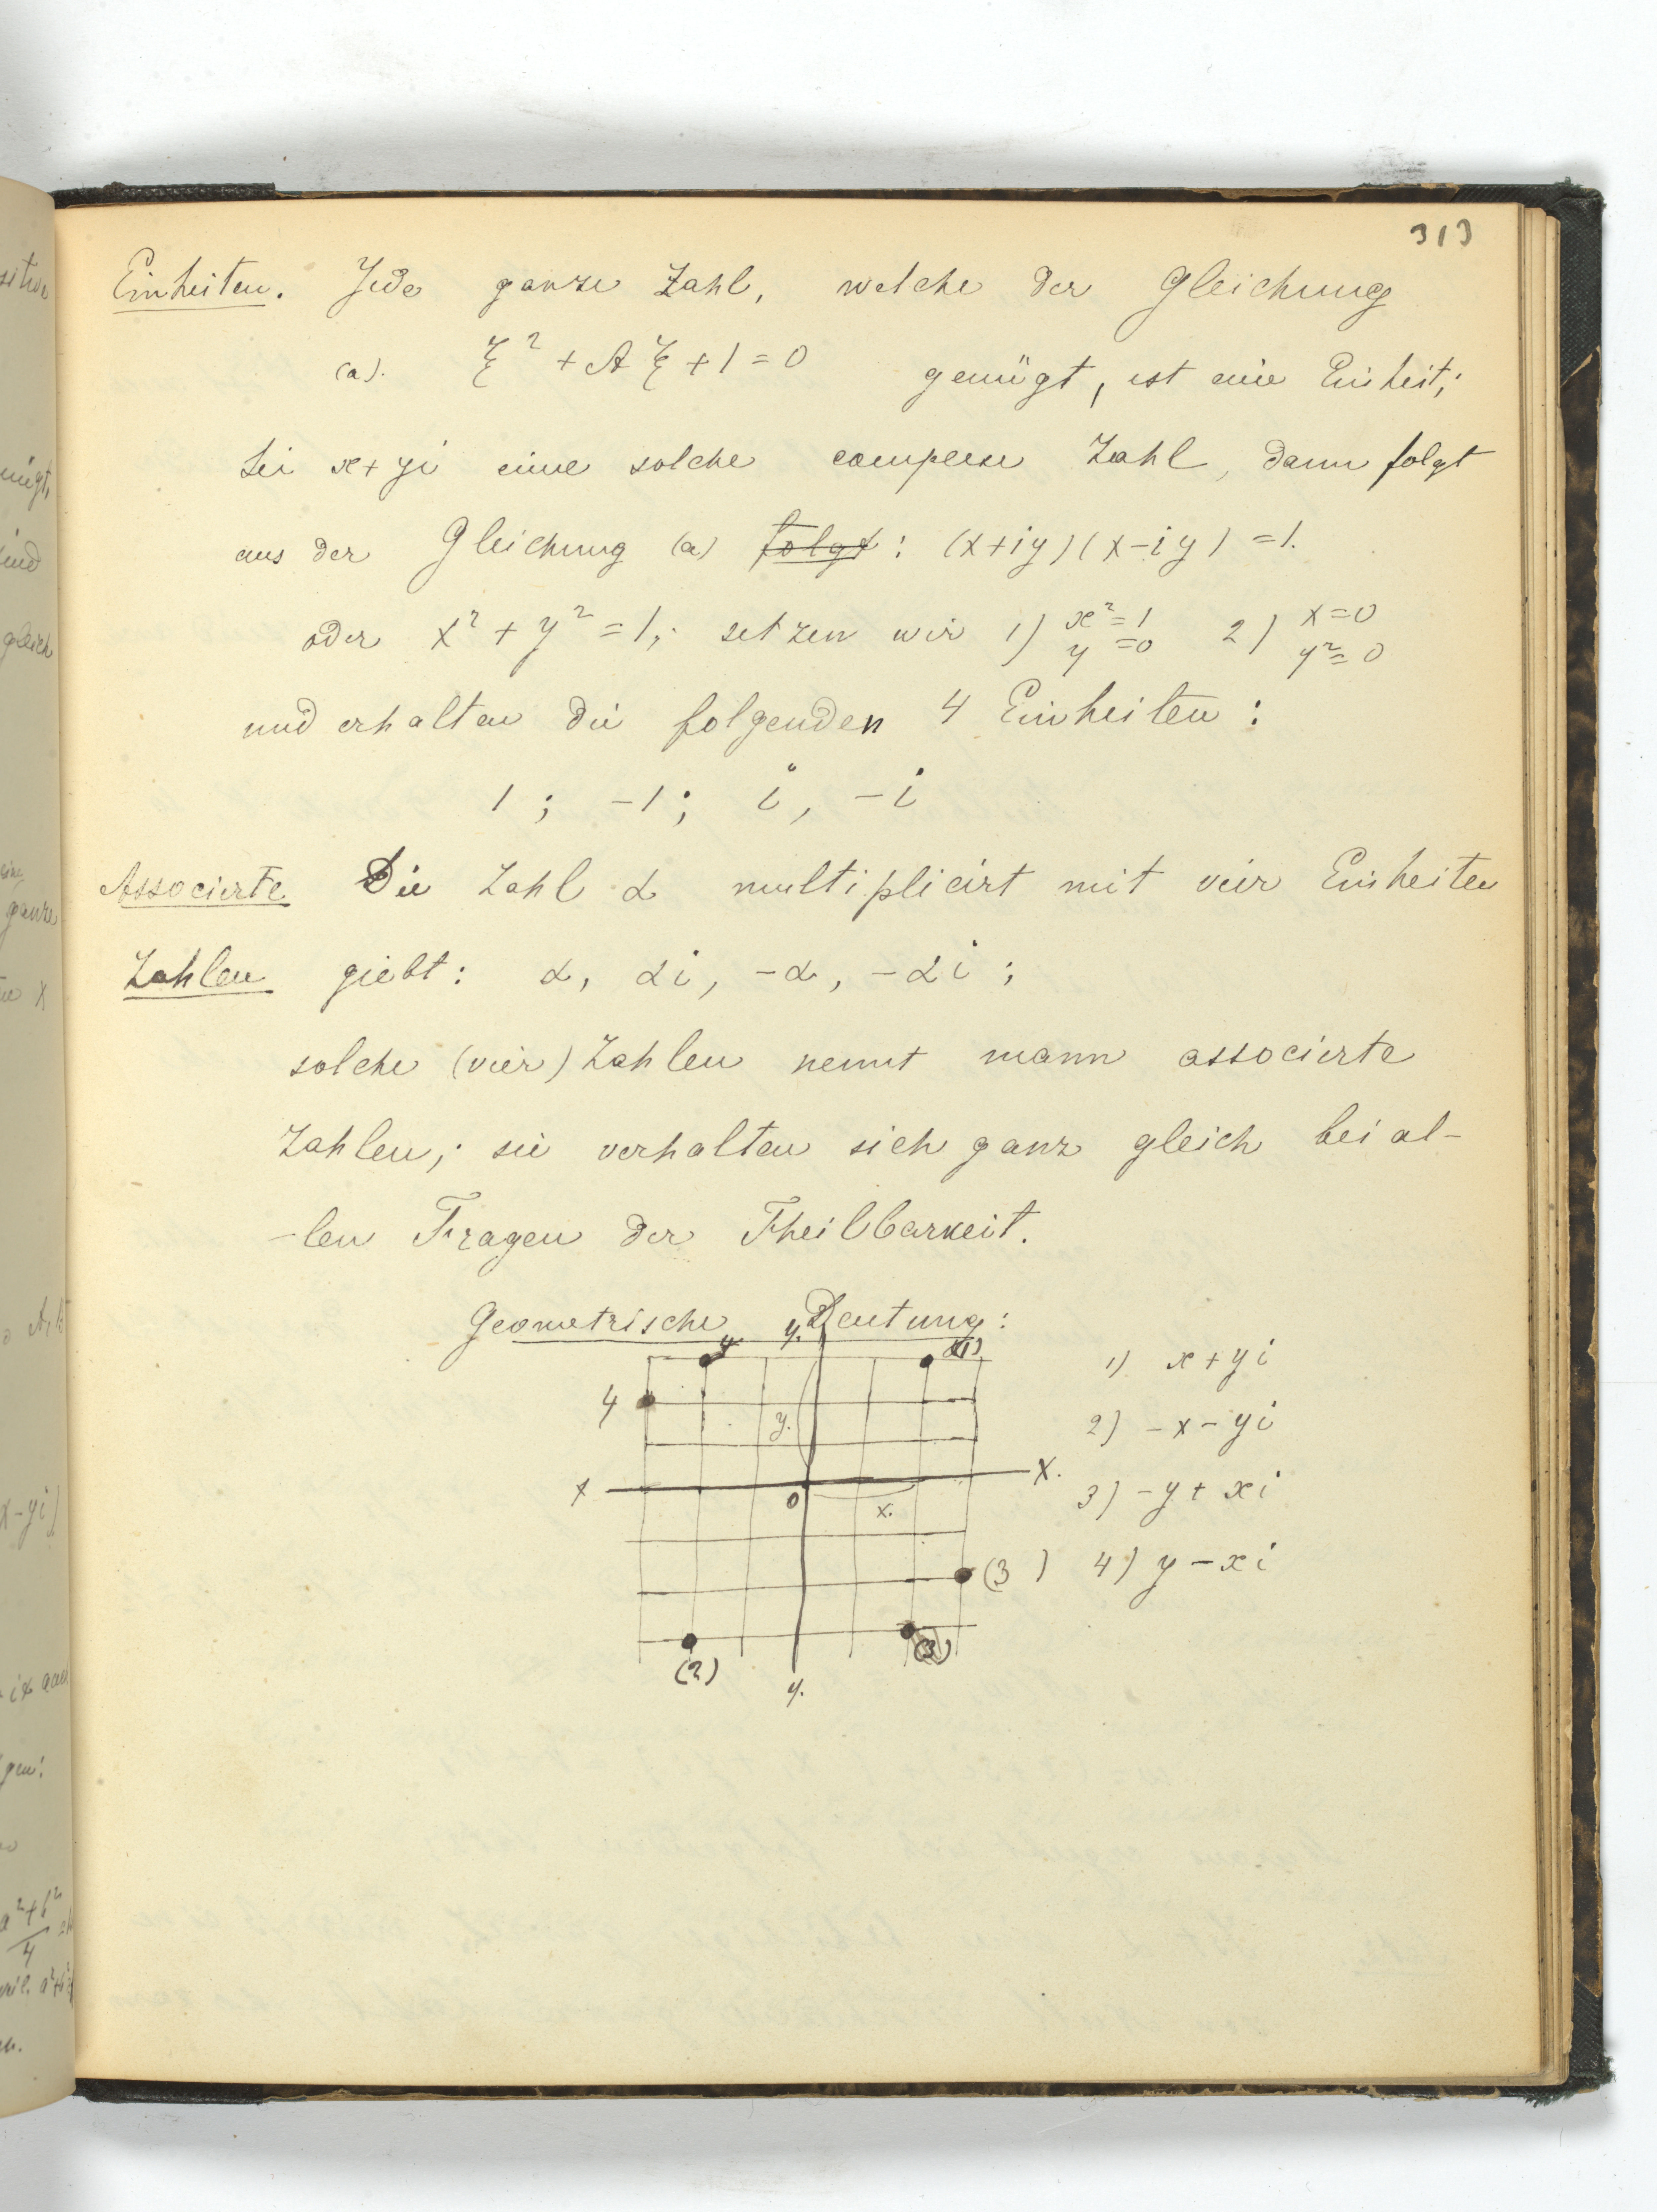 313
Einheiten. Jede ganze Zahl, welche der Gleichung
(a). ξ² + Aξ + 1 = 0 genügt, ist eine Einheit;
Sei x + yi eine solche complexe Zahl, dann folgt
aus der Gleichung (a) folgt: (x+iy)(x-iy) = 1.
oder x² + y² = 1; setzen wir 1) x²=1 y=0 2) x=0 y²=0
und erhalten die folgenden 4 Einheiten:
1; -1; i, -i
Associerte Die Zahl α multiplicirt mit vier Einheiten
Zahlen giebt: α, αi, -α, -αi;
solche (vier) Zahlen nennt mann associerte
Zahlen; sie verhalten sich ganz gleich bei al-
-len Fragen der Theilbarkeit.
Geometrische Deutung:
y.
4 (1) 1) x + yi
4 y. 2) -x - yi
x X. 3) -y + xi
0 x.
(3) 4) y - xi
(2) (3)
y.